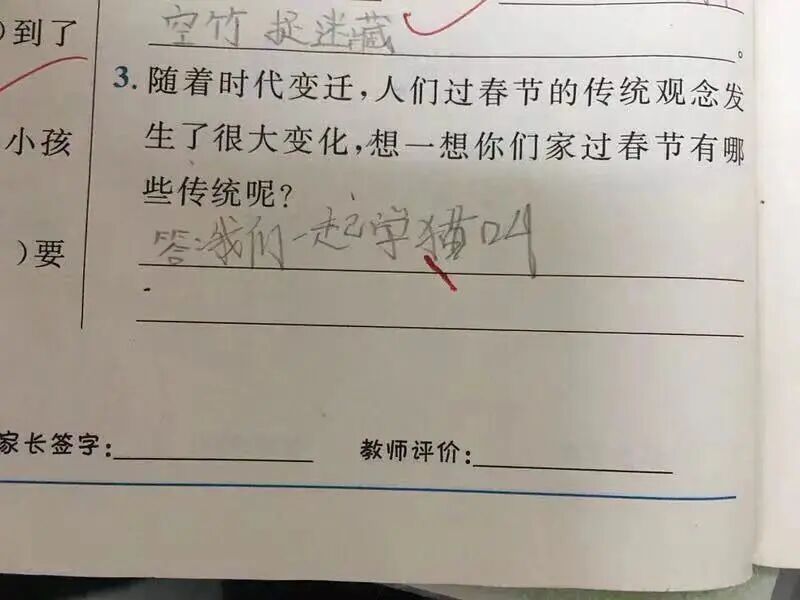 )到了
小孩
)要
空竹 捉迷藏
。
3. 随着时代变迁,人们过春节的传统观念发
生了很大变化,想一想你们家过春节有哪
些传统呢?
答:我们一起学猫叫
家长签字:
教师评价: